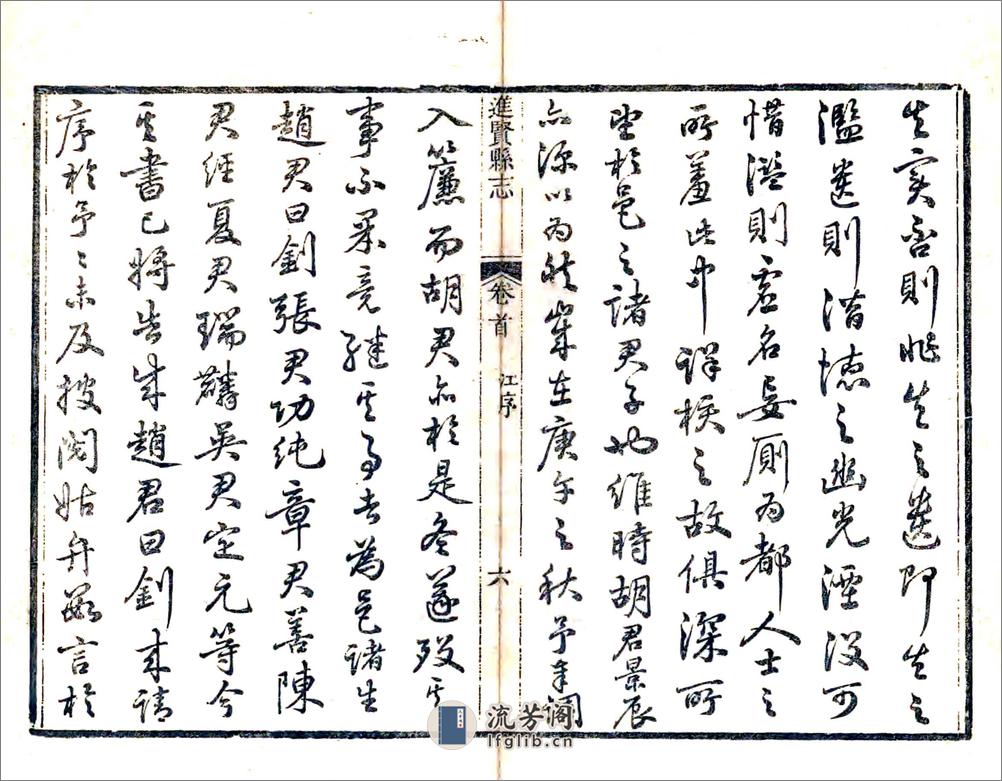 失實否則非失之遺即失之
濫遺則潛德之幽光湮沒可
惜濫則虛名妄廁為都人士之
所羞此中詳核之故俱深所
望於邑之諸君子也維時胡君景辰
亦源以為然歲在庚午之秋予奉調
進賢縣志
卷首
江序
六
入簾而胡君亦於是冬遂歿其
事不果竟繼其事者為邑諸生
趙君曰釗張君功純章君善陳
君經夏君瑞麟吳君定元等今
其書已將告成趙君曰釗來請
序於予予未及披閱姑弁數言於
流芳閣
lfglib.cn